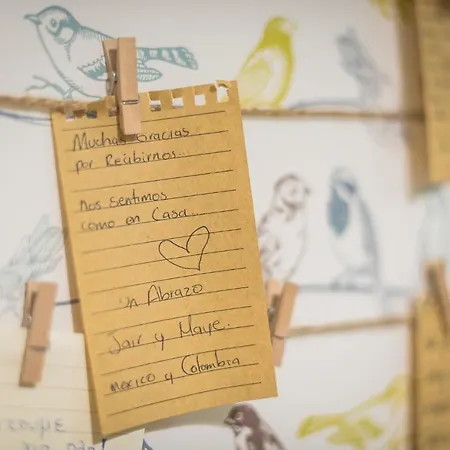 Muchas Gracias
por Recibirnos...
Nos sentimos
como en Casa...
Un Abrazo
Jair y Maye.
mexico y Colombia